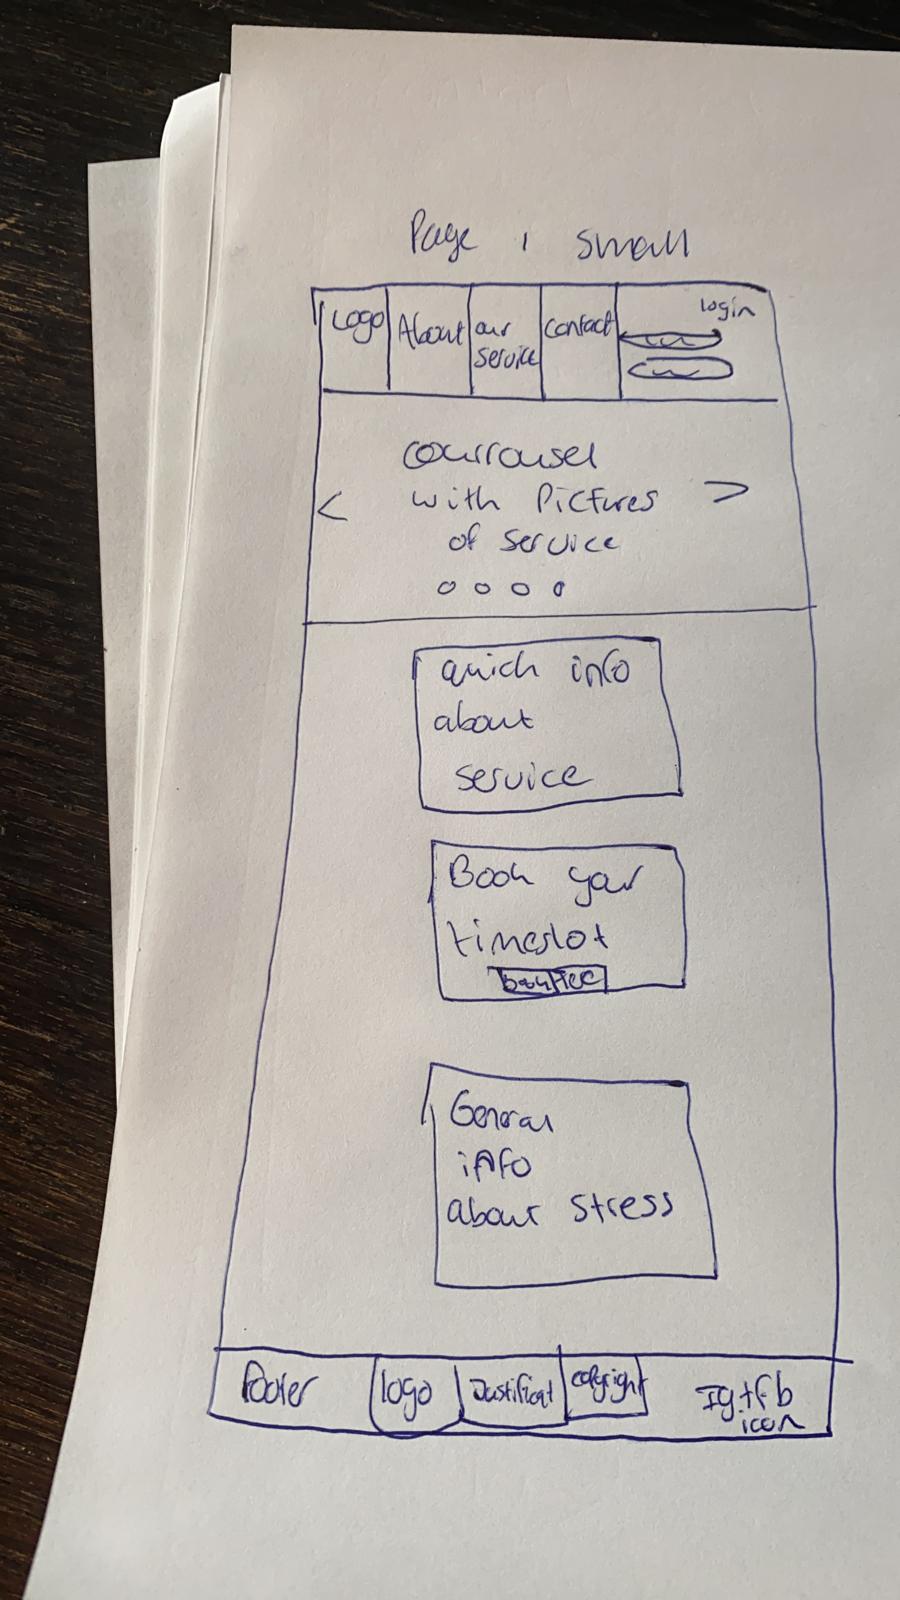 Page 1 Small
Logo
About
our
service
Contact
login
Courrousel
< with Pictures >
of service
quick info
about
service
Book your
timeslot
General
info
about stress
Footer
logo
Justificat
copyright
Ig + fb
icon